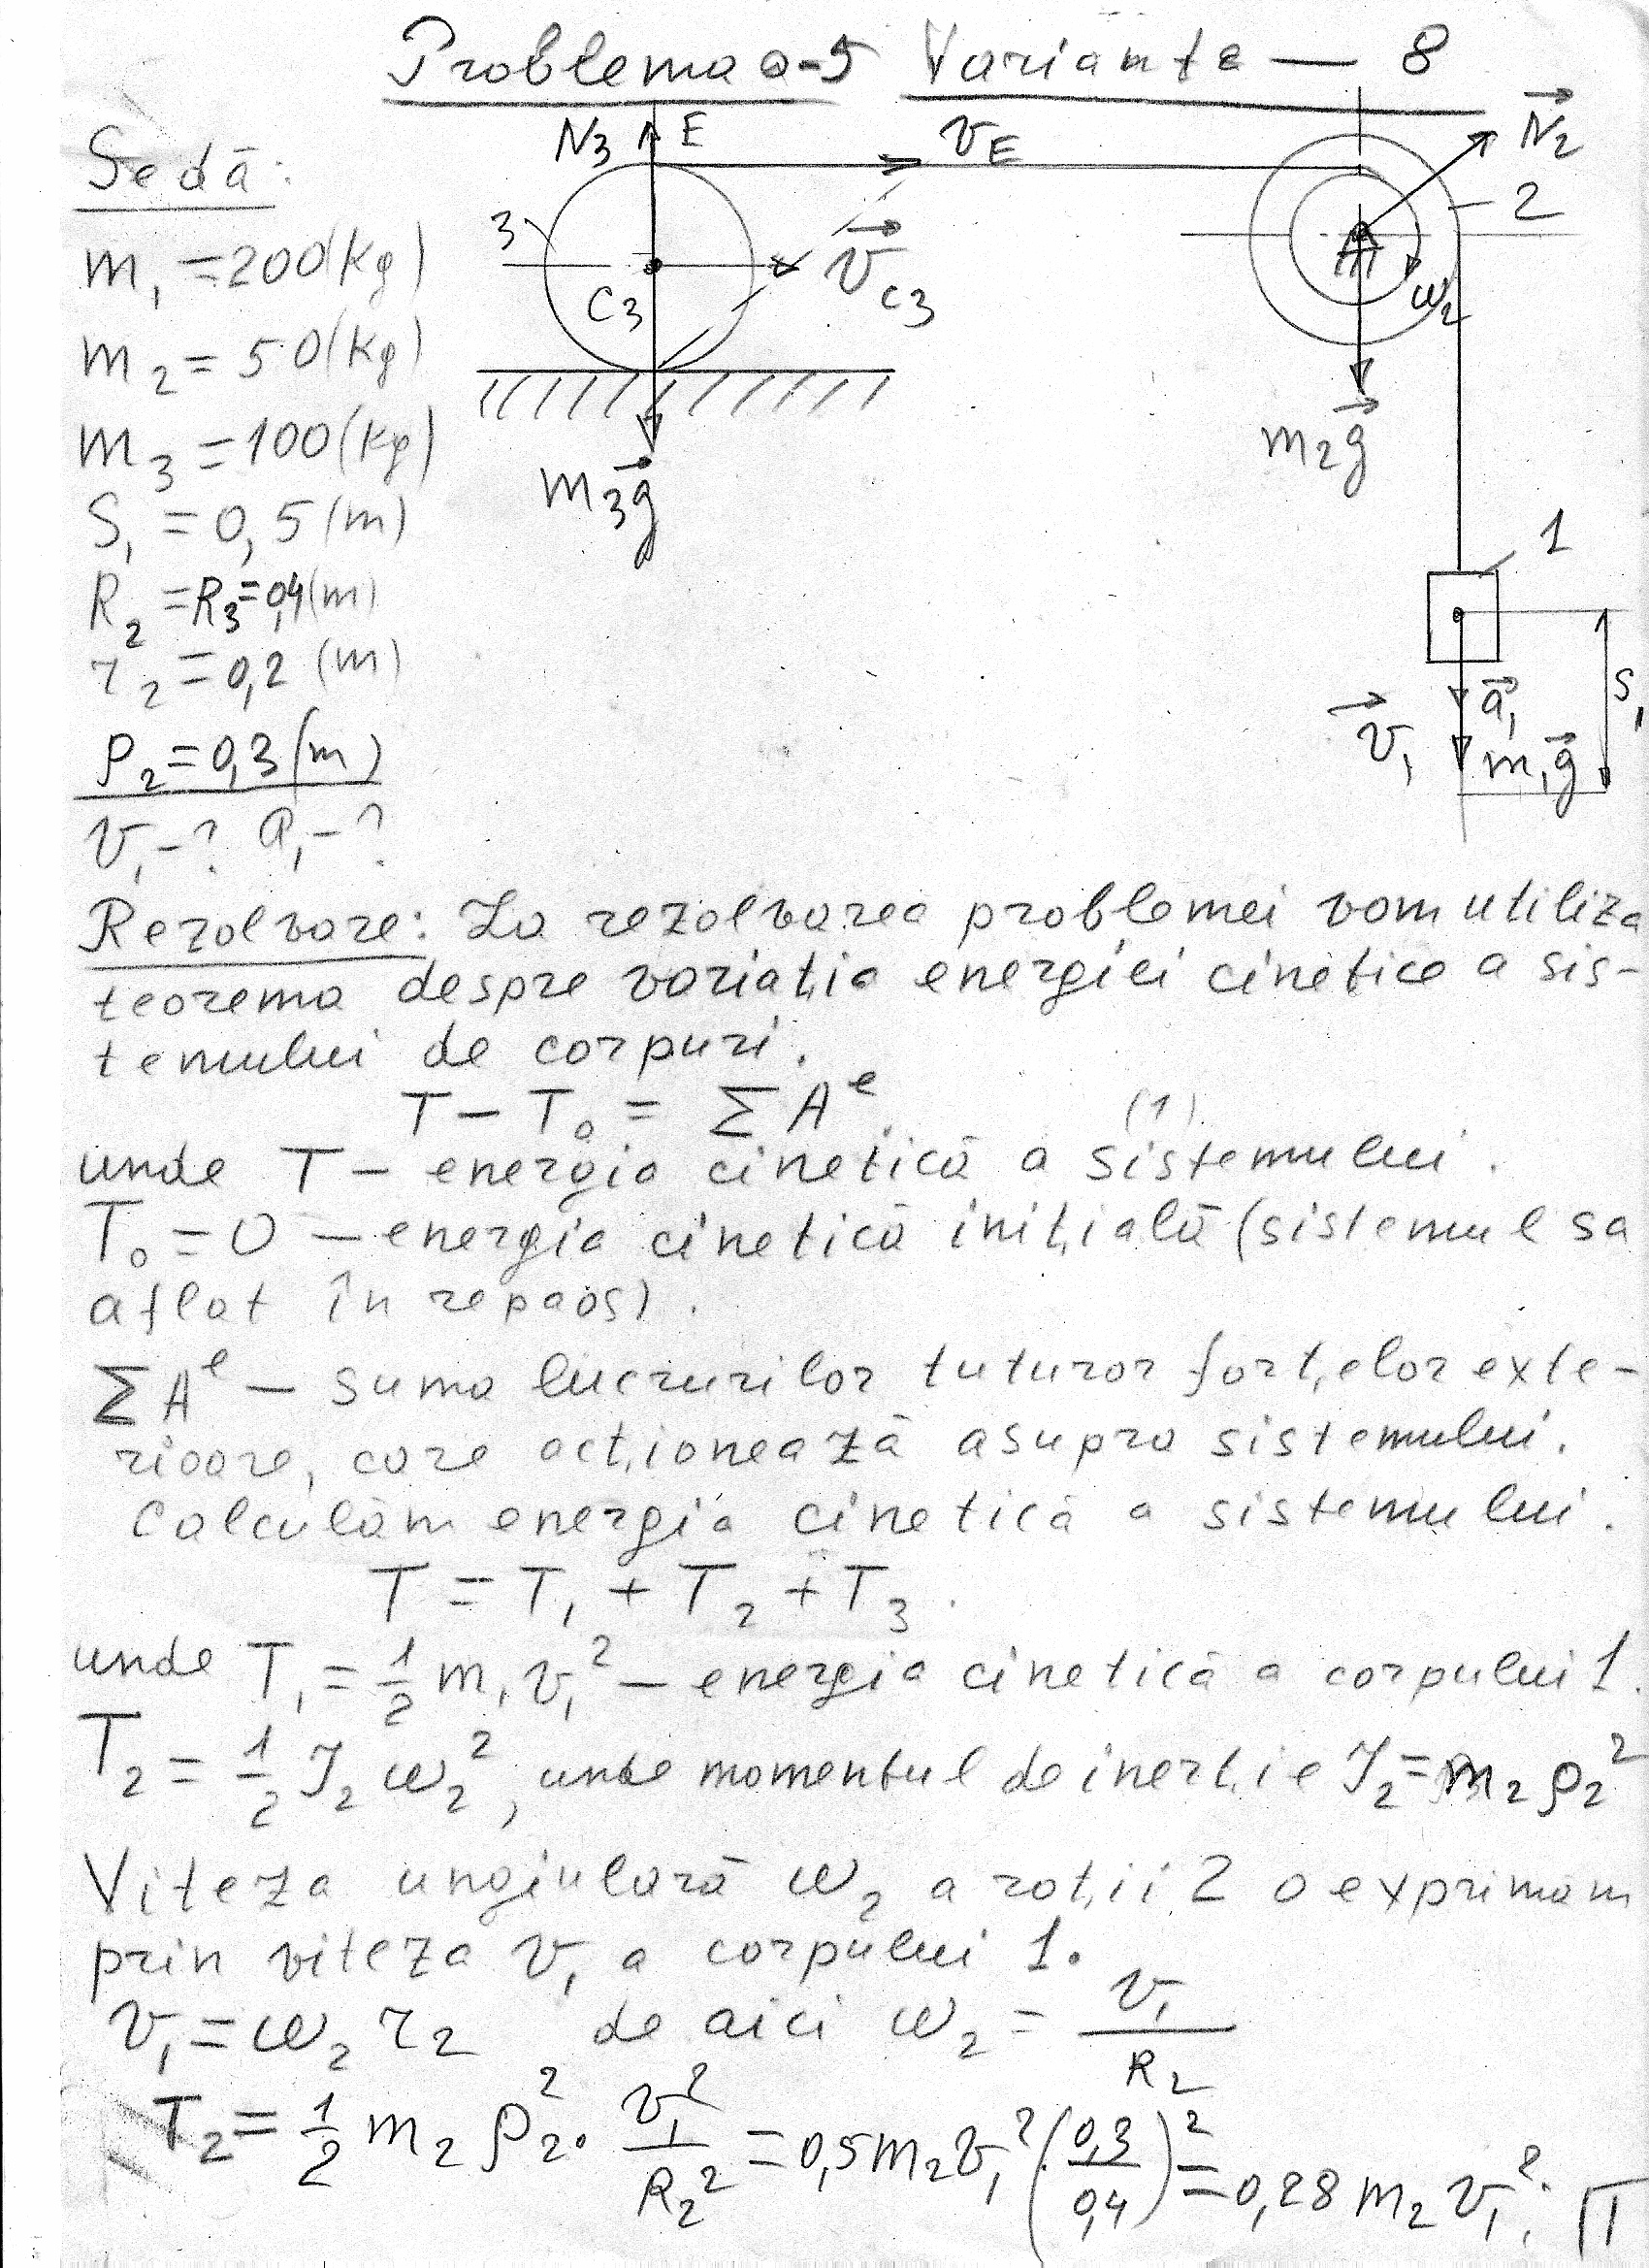 Problema D-5 Varianta — 8
Se dă:
m₁ = 200(kg)
m₂ = 50(kg)
m₃ = 100(kg)
S₁ = 0,5(m)
R₂ = R₃ = 0,4(m)
r₂ = 0,2 (m)
ρ₂ = 0,3(m)
v₁ - ? a₁ - ?
N₃ E v_E N₂
3 2
C₃ v_C3 ω₂
m₃g m₂g
1
v₁ a₁ m₁g S₁
Rezolvare: La rezolvarea problemei vom utiliza
teorema despre variația energiei cinetice a sis-
temului de corpuri.
T − T₀ = ΣAᵉ (1)
unde T — energia cinetică a sistemului.
T₀ = 0 — energia cinetică inițială (sistemul sa
aflat în repaos).
ΣAᵉ — suma lucrurilor tuturor forțelor exte-
rioare, care acționează asupra sistemului.
Calculăm energia cinetică a sistemului.
T = T₁ + T₂ + T₃.
unde T₁ = 1/2 m₁ v₁² — energia cinetică a corpului 1.
T₂ = 1/2 J₂ ω₂², unde momentul de inerție J₂ = m₂ρ₂²
Viteza unghiulară ω₂ a roții 2 o exprimam
prin viteza v₁ a corpului 1.
v₁ = ω₂ r₂ de aici ω₂ = v₁/R₂
T₂ = 1/2 m₂ ρ₂² · v₁²/R₂² = 0,5m₂v₁² · (0,3/0,4)² = 0,28 m₂ v₁²;